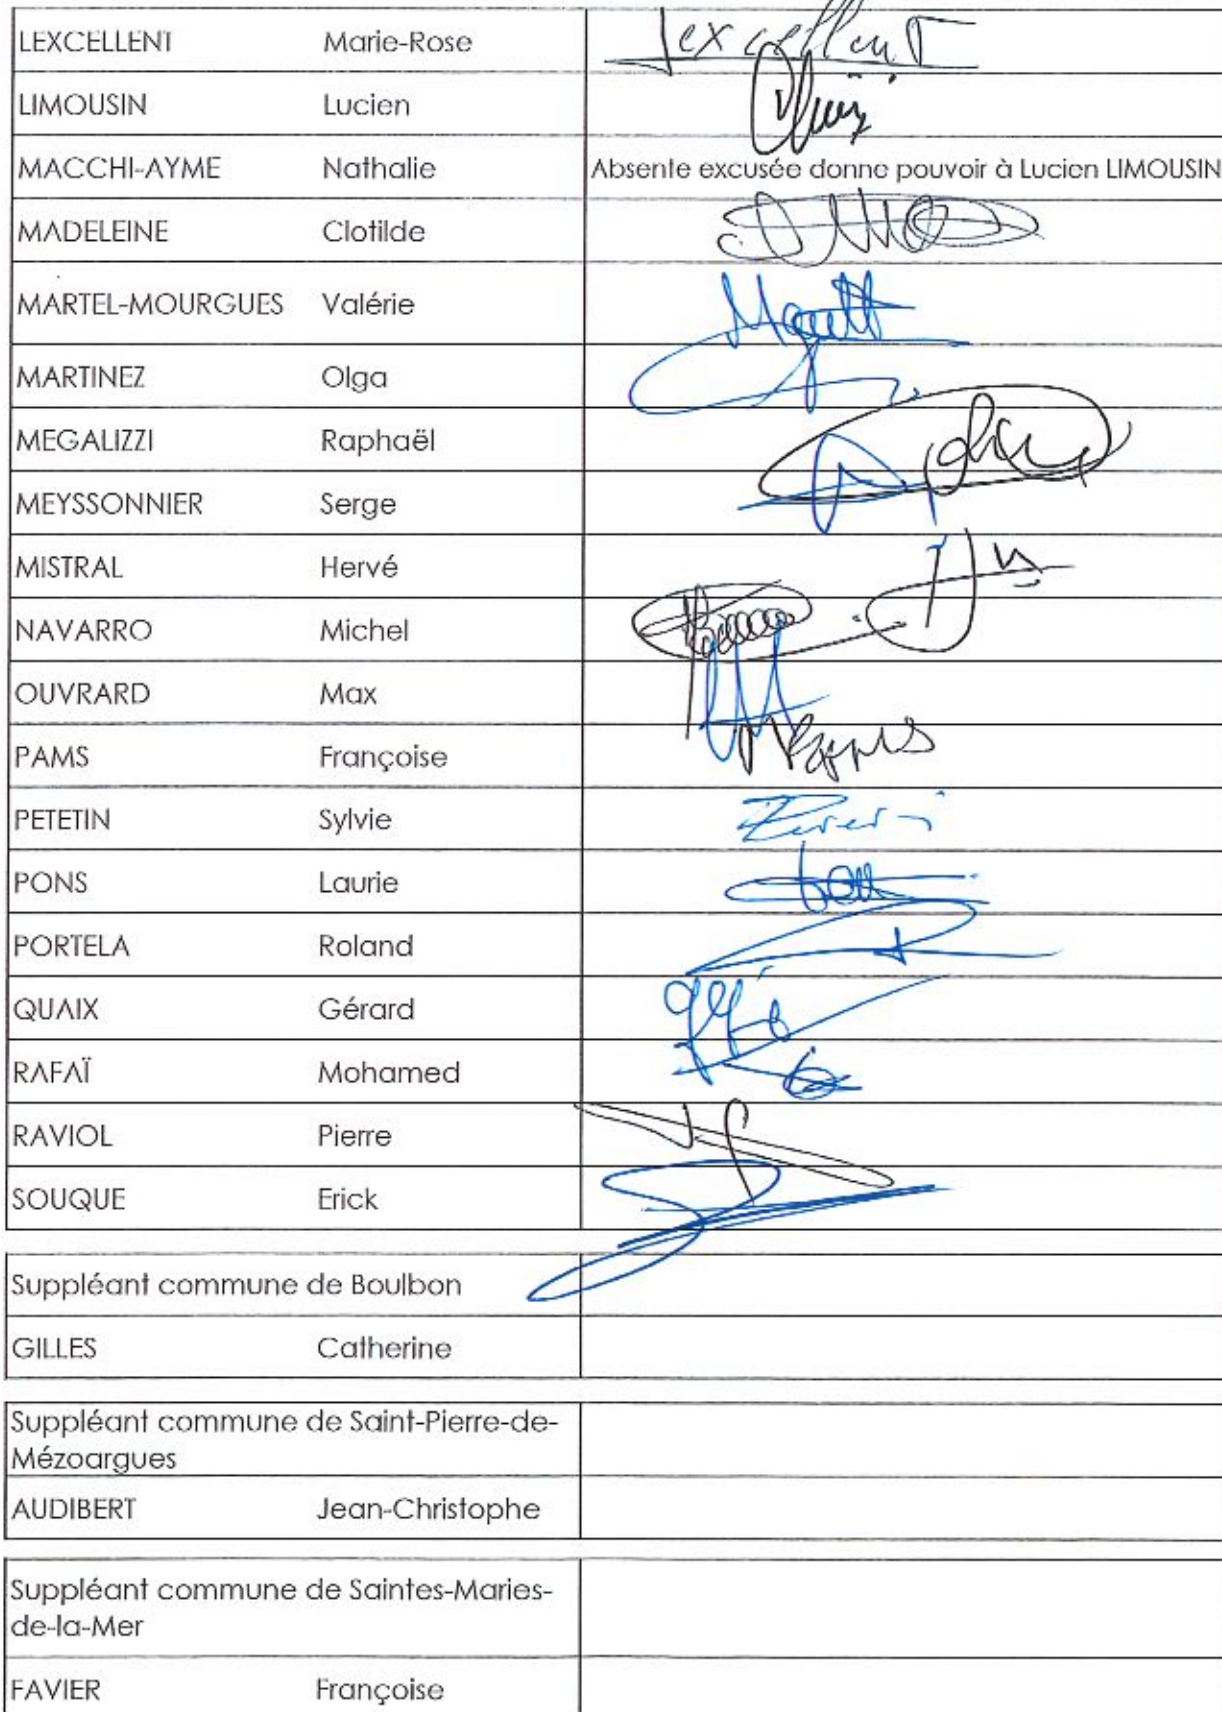 LEXCELLENT Marie-Rose Lexcellent
LIMOUSIN Lucien
MACCHI-AYME Nathalie Absente excusée donne pouvoir à Lucien LIMOUSIN
MADELEINE Clotilde
MARTEL-MOURGUES Valérie
MARTINEZ Olga
MEGALIZZI Raphaël
MEYSSONNIER Serge
MISTRAL Hervé
NAVARRO Michel
OUVRARD Max
PAMS Françoise
PETETIN Sylvie
PONS Laurie
PORTELA Roland
QUAIX Gérard
RAFAÏ Mohamed
RAVIOL Pierre
SOUQUE Erick
Suppléant commune de Boulbon
GILLES Catherine
Suppléant commune de Saint-Pierre-de-
Mézoargues
AUDIBERT Jean-Christophe
Suppléant commune de Saintes-Maries-
de-la-Mer
FAVIER Françoise